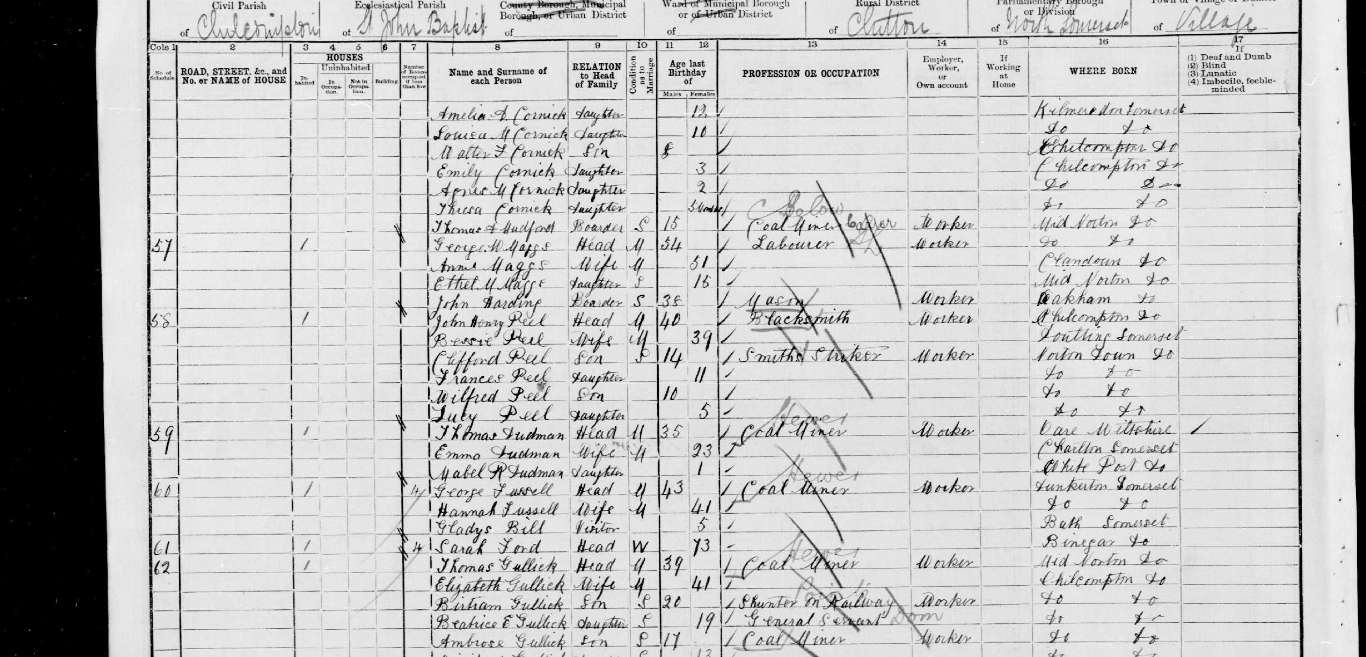 Civil Parish Ecclesiastical Parish County Borough, Municipal Borough, or Urban District Ward of Municipal Borough or of Urban District Rural District Parliamentary Borough or Division
of Chilcompton of St John Baptist of of of Clutton of North Somerset of Village
Cols 1 2 3 4 5 6 7 8 9 10 11 12 13 14 15 16 17
No. of Schedule ROAD, STREET, &c., and No. or NAME of HOUSE HOUSES Inhabited Uninhabited In Occupation Not in Occupation Building Number of Rooms if less than five Name and Surname of each Person RELATION to Head of Family Condition as to Marriage Age last Birthday of Males Females PROFESSION OR OCCUPATION Employer, Worker, or Own account If Working at Home WHERE BORN If (1) Deaf and Dumb (2) Blind (3) Lunatic (4) Imbecile, feeble-minded
Amelia A. Cornick Daughter 12 Kilmersdon Somerset
Louisa M Cornick Daughter 10 do do
Walter F Cornick Son 8 Chilcompton do
Emily Cornick Daughter 3 Chilcompton do
Agnes M Cornick Daughter 2 do do
Thresa Cornick Daughter 5 do do
Thomas A Mudford Boarder S 15 Coal Miner Below Worker Mid Norton do
57 1 George W Maggs Head M 54 Labourer Worker do do
Annie Maggs Wife M 51 Clandown do
Ethel M Maggs Daughter S 15 Mid Norton do
John Harding Boarder S 38 Mason Worker Oakham do
58 1 John Henry Peel Head M 40 Blacksmith Worker Chilcompton do
Bessie Peel Wife M 39 Doulting Somerset
Clifford Peel Son S 14 Smiths Striker Worker Norton Down do
Frances Peel Daughter 11 do do
Wilfred Peel Son 10 do do
Lucy Peel Daughter 5 do do
59 1 Thomas Dudman Head M 35 Coal Miner Hewer Worker Wiltshire
Emma Dudman Wife M 23 Charlton Somerset
Mabel R Dudman Daughter 1 White Post do
60 1 4 George Fussell Head M 43 Coal Miner Hewer Worker Dunkerton Somerset
Hannah Fussell Wife M 41 do do
Gladys Bill Visitor 5 Bath Somerset
61 1 4 Sarah Ford Head W 73 Binegar do
62 1 Thomas Gullick Head M 39 Coal Miner Hewer Worker Mid Norton do
Elizabeth Gullick Wife M 41 Chilcompton do
Birtram Gullick Son S 20 Shunter on Railway Worker do do
Beatrice E Gullick Daughter S 19 General Servant Dom do do
Ambrose Gullick Son S 17 Coal Miner Worker do do